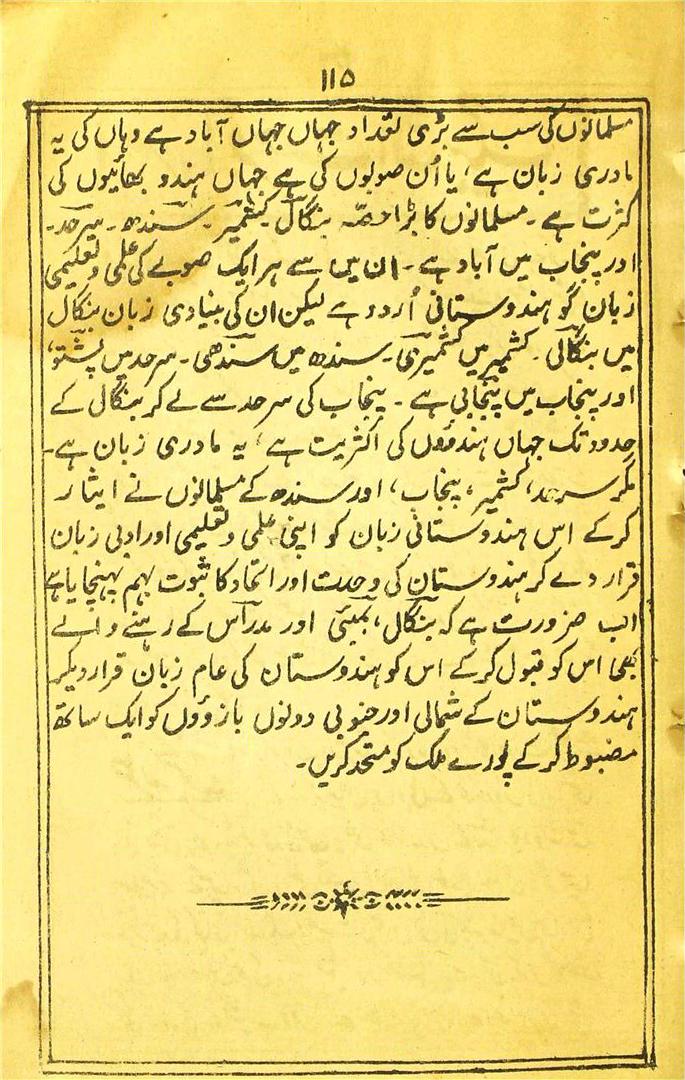 ۱۱۵
مسلمانوں کی سب سے بڑی تعداد جہاں جہاں آباد ہے وہاں کی یہ
مادری زبان ہے، یا اُن صوبوں کی ہے جہاں ہندو بھائیوں کی
کثرت ہے۔ مسلمانوں کا بڑا حصّہ بنگال، کشمیر۔ سندھ۔ سرحد۔
اور پنجاب میں آباد ہے۔ ان میں سے ہر ایک صوبے کی علمی و تعلیمی
زبان گو ہندوستانی اُردو ہے لیکن ان کی بنیادی زبان بنگال
میں بنگالی۔ کشمیر میں کشمیری۔ سندھ میں سندھی۔ سرحد میں پشتو،
اور پنجاب میں پنجابی ہے۔ پنجاب کی سرحد سے لے کر بنگال کے
حدود تک جہاں ہندوؤں کی اکثریت ہے، یہ مادری زبان ہے۔
مگر سرحد، کشمیر، پنجاب، اور سندھ کے مسلمانوں نے ایثار
کر کے اس ہندوستانی زبان کو اپنی علمی و تعلیمی اور ادبی زبان
قرار دے کر ہندوستان کی وحدت اور اتحاد کا ثبوت بہم پہنچایا ہے
اب ضرورت ہے کہ بنگال، بمبئی اور مدراس کے رہنے والے
بھی اس کو قبول کر کے اس کو ہندوستان کی عام زبان قرار دیکر
ہندوستان کے شمالی اور جنوبی دونوں بازوؤں کو ایک ساتھ
مضبوط کر کے پورے ملک کو متحد کریں۔